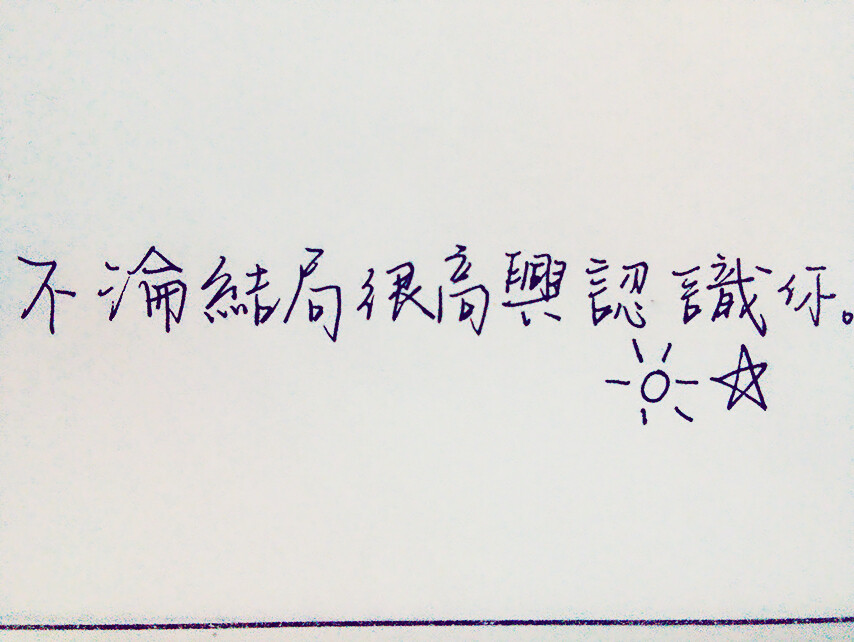 不淪結局很高興認識你。